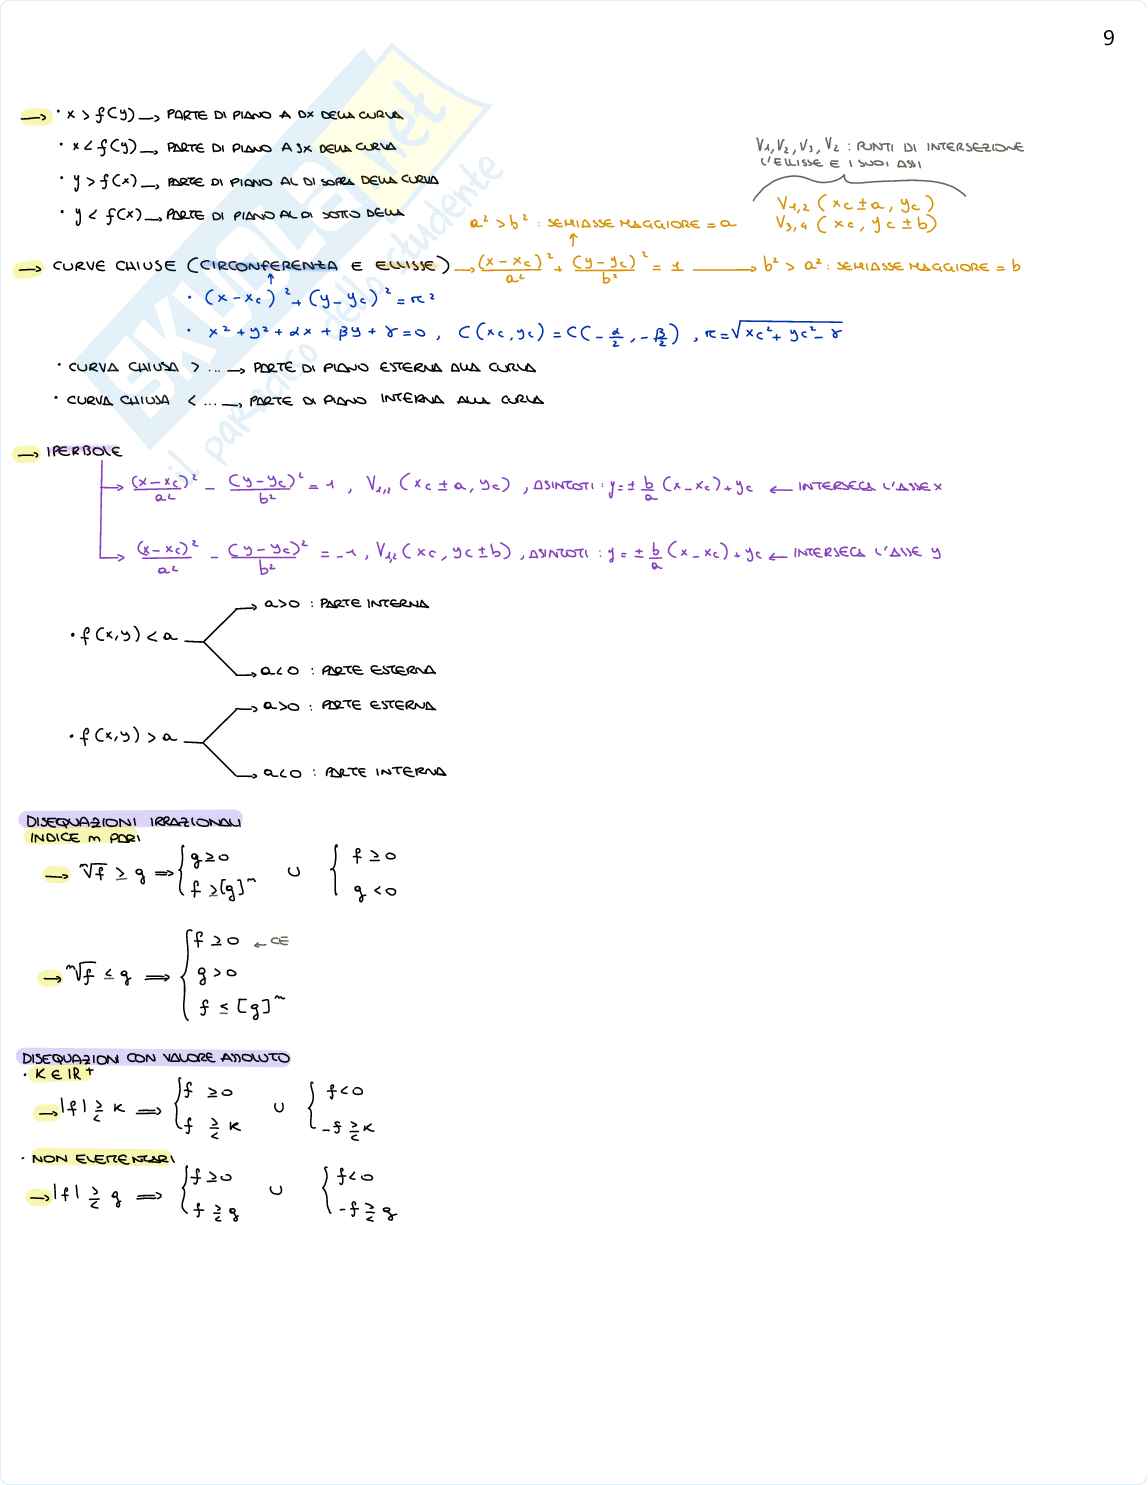 9
→ · x > f(y) → PARTE DI PIANO A DX DELLA CURVA
· x < f(y) → PARTE DI PIANO A SX DELLA CURVA
· y > f(x) → PARTE DI PIANO AL DI SOPRA DELLA CURVA
· y < f(x) → PARTE DI PIANO AL DI SOTTO DELLA
V1, V2, V3, V2 : PUNTI DI INTERSEZIONE
L'ELLISSE E I SUOI ASSI
V1,2 (xc ± a, yc)
V3,4 (xc, yc ± b)
a² > b² : SEMIASSE MAGGIORE = a
→ CURVE CHIUSE (CIRCONFERENZA E ELLISSE) → (x - xc)²/a² + (y - yc)²/b² = 1 → b² > a² : SEMIASSE MAGGIORE = b
· (x - xc)² + (y - yc)² = r²
· x² + y² + αx + βy + γ = 0, C(xc, yc) = C(-α/2, -β/2), r = √(xc² + yc² - γ)
· CURVA CHIUSA > ... → PARTE DI PIANO ESTERNA ALLA CURVA
· CURVA CHIUSA < ... → PARTE DI PIANO INTERNA ALLA CURVA
→ IPERBOLE
→ (x - xc)²/a² - (y - yc)²/b² = 1, V1,2 (xc ± a, yc), ASINTOTI : y = ± b/a (x - xc) + yc ← INTERSECA L'ASSE X
→ (x - xc)²/a² - (y - yc)²/b² = -1, V1,2 (xc, yc ± b), ASINTOTI : y = ± b/a (x - xc) + yc ← INTERSECA L'ASSE y
→ a > 0 : PARTE INTERNA
· f(x,y) < a
→ a < 0 : PARTE ESTERNA
→ a > 0 : PARTE ESTERNA
· f(x,y) > a
→ a < 0 : PARTE INTERNA
DISEQUAZIONI IRRAZIONALI
INDICE n PARI
→ ⁿ√f ≥ g ⟹ { g ≥ 0 ; f ≥ [g]ⁿ ∪ { f ≥ 0 ; g < 0
→ ⁿ√f ≤ g ⟹ { f ≥ 0 ← CE
g > 0
f ≤ [g]ⁿ
DISEQUAZIONI CON VALORE ASSOLUTO
· K ∈ IR⁺
→ |f| ≷ K ⟹ { f ≥ 0 ; f ≷ K ∪ { f < 0 ; -f ≷ K
· NON ELEMENTARI
→ |f| ≷ g ⟹ { f ≥ 0 ; f ≷ g ∪ { f < 0 ; -f ≷ g
SKUOLA.net
il paradiso dello studente